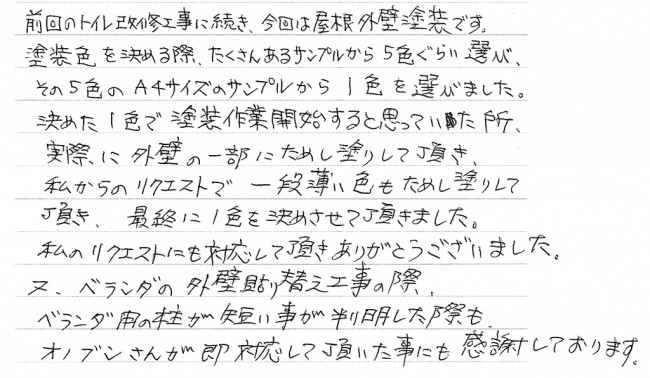 前回のトイレ改修工事に続き、今回は屋根外壁塗装です。
塗装色を決める際、たくさんあるサンプルから5色ぐらい選び、
その5色のA4サイズのサンプルから1色を選びました。
決めた1色で塗装作業開始すると思っていた所、
実際に外壁の一部にためし塗りして頂き、
私からのリクエストで一段薄い色もためし塗りして
頂き、最終に1色を決めさせて頂きました。
私のリクエストにも対応して頂きありがとうございました。
又、ベランダの外壁貼り替え工事の際、
ベランダ用の柱が短い事が判明した際も、
オノブンさんが即対応して頂いた事にも感謝しております。